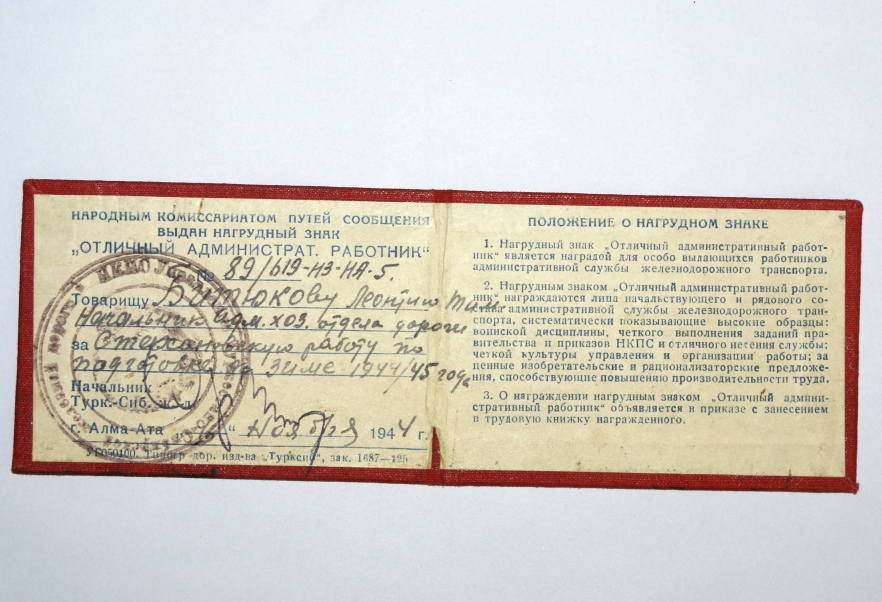 НАРОДНЫМ КОМИССАРИАТОМ ПУТЕЙ СООБЩЕНИЯ
ВЫДАН НАГРУДНЫЙ ЗНАК
„ОТЛИЧНЫЙ АДМИНИСТРАТ. РАБОТНИК“
№ 89/619-НЗ-НА-5.
Товарищу Битюкову Леонтию
Начальник адм. хоз. отдела дороги
за Стахановскую работу по
подготовке к зиме 1944/45 года
Начальник
Турк.-Сиб. ж. д.
г. Алма-Ата " ноября 1944 г.
УГ050100. Типогр дор. изд-ва „Турксиб“, зак. 1687—125
ПОЛОЖЕНИЕ О НАГРУДНОМ ЗНАКЕ
1. Нагрудный знак „Отличный административный работ-
ник“ является наградой для особо выдающихся работников
административной службы железнодорожного транспорта.
2. Нагрудным знаком „Отличный административный работ-
ник“ награждаются лица начальствующего и рядового со-
става административной службы железнодорожного тран-
спорта, систематически показывающие высокие образцы:
воинской дисциплины, четкого выполнения заданий пра-
вительства и приказов НКПС и отличного несения службы;
четкой культуры управления и организации работы; за
ценные изобретательские и рационализаторские предложе-
ния, способствующие повышению производительности труда.
3. О награждении нагрудным знаком „Отличный админи-
стративный работник“ объявляется в приказе с занесением
в трудовую книжку награжденного.